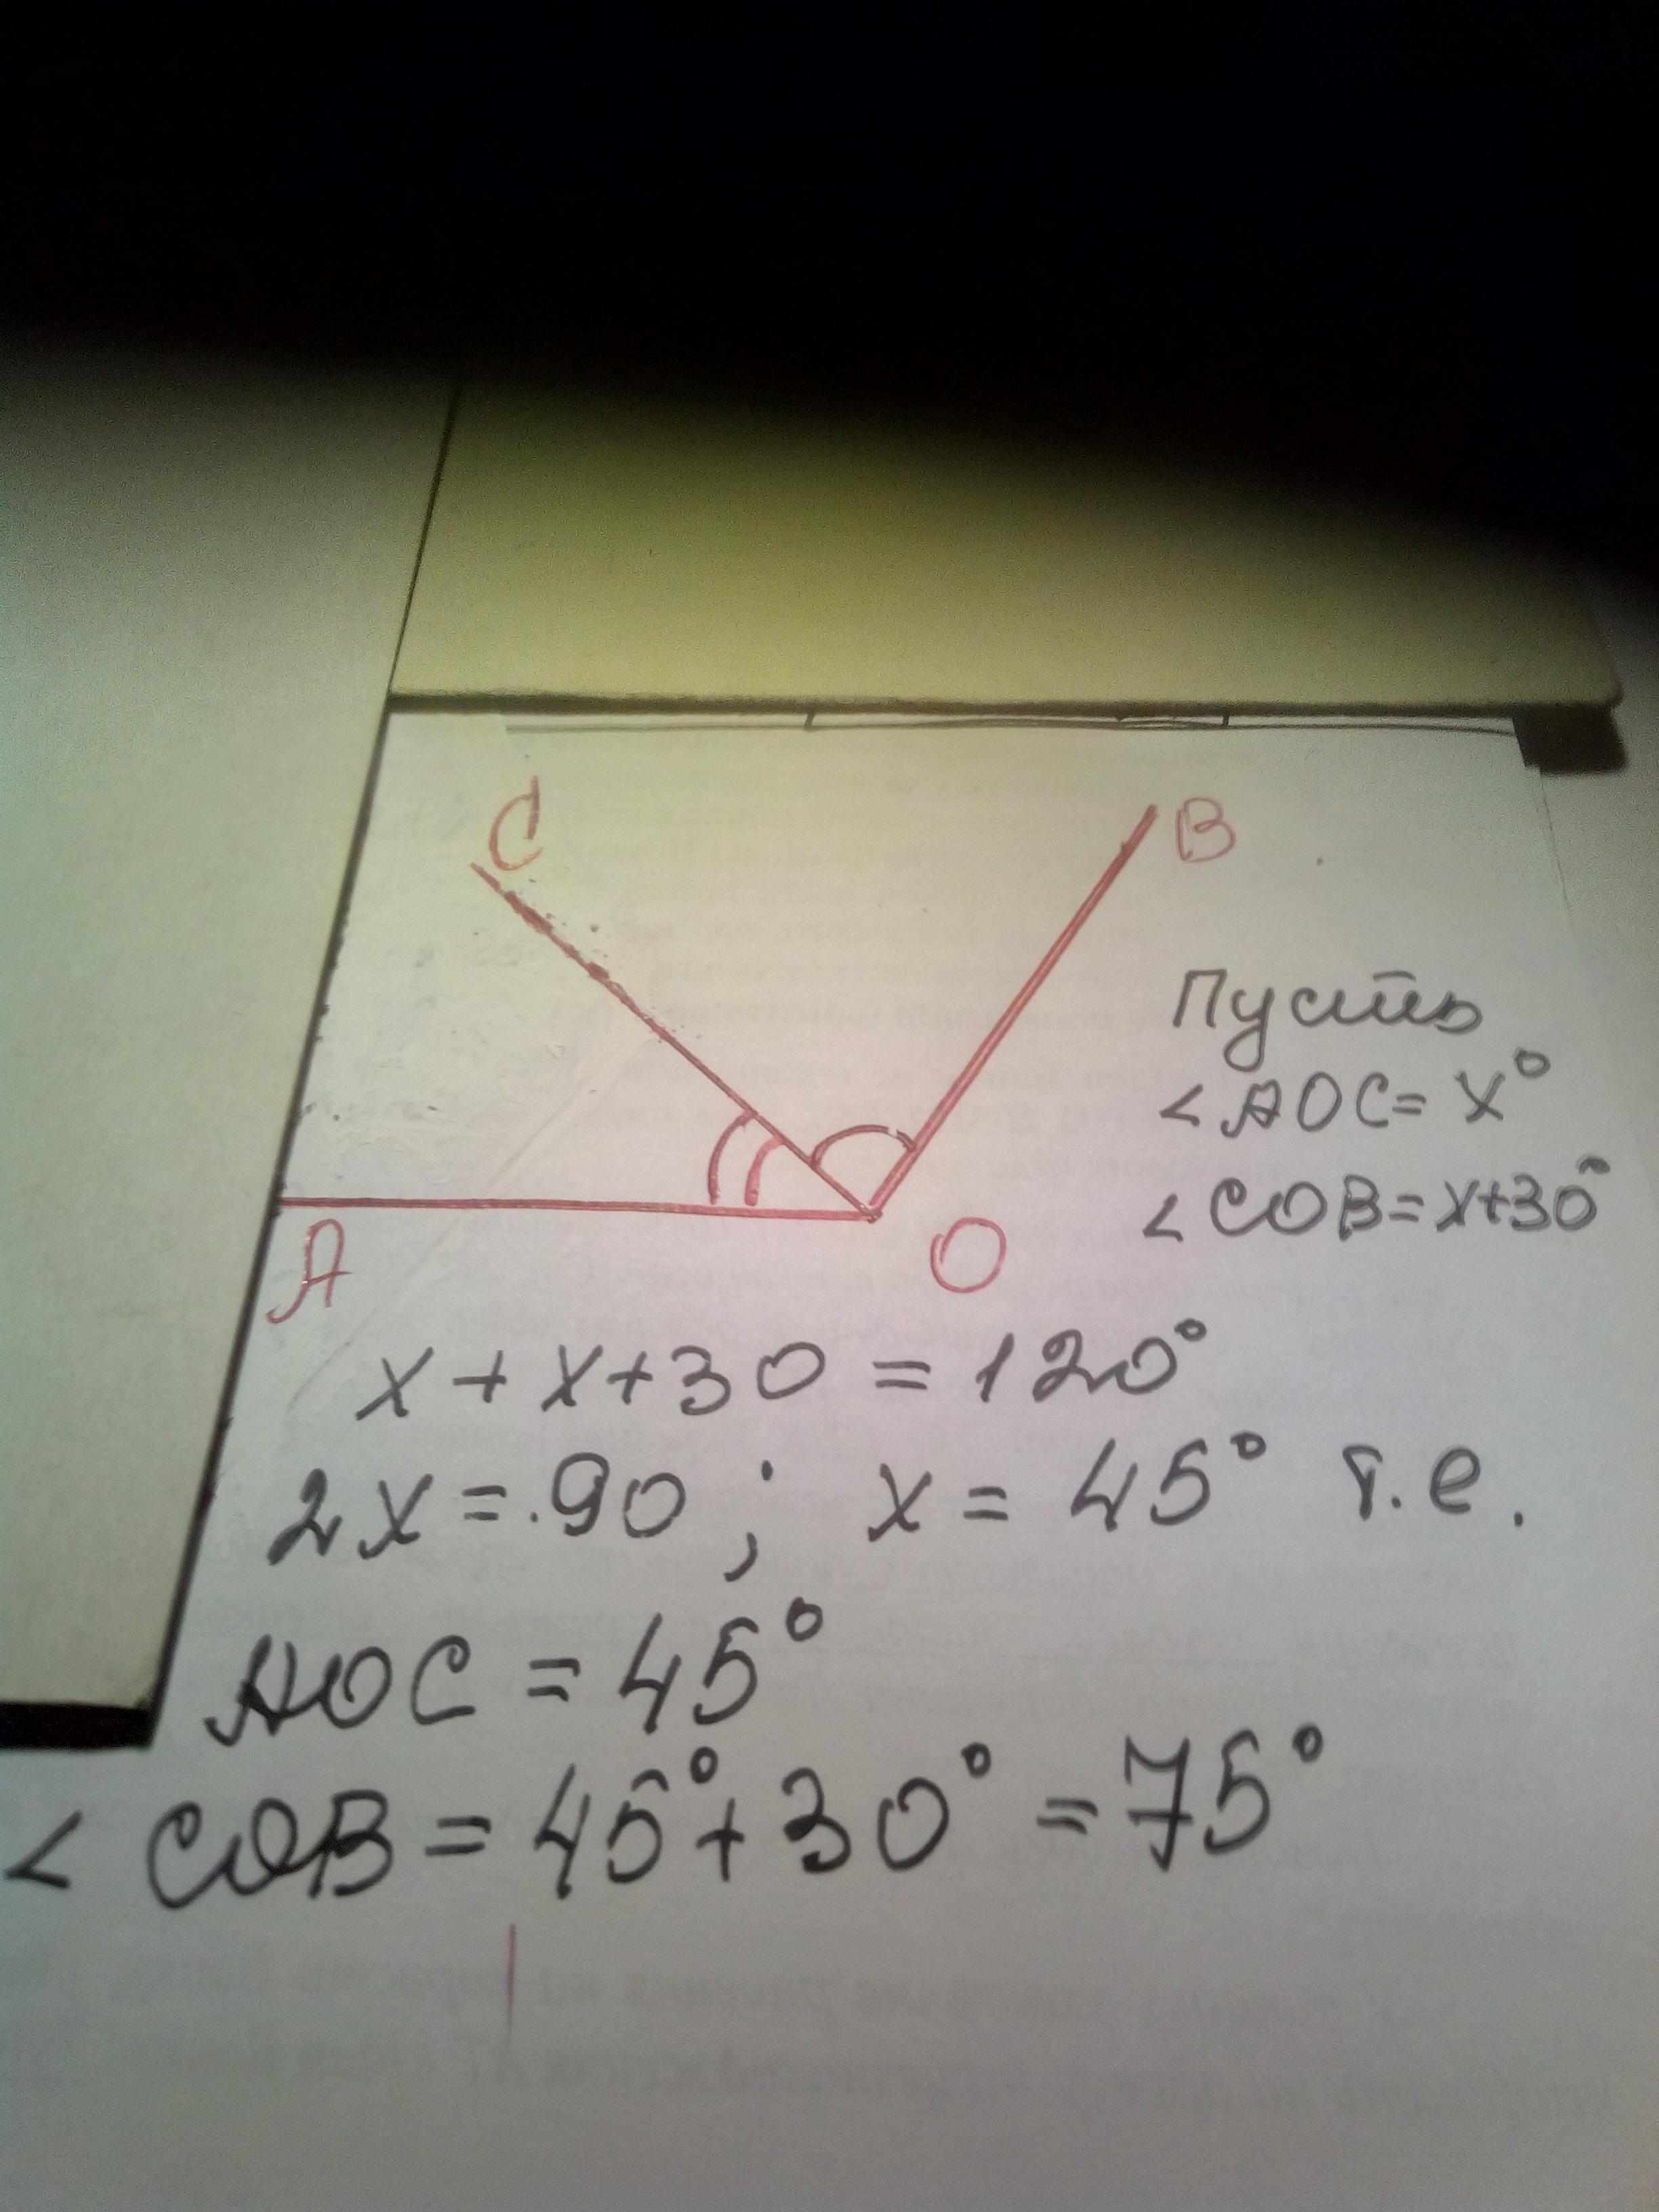 C
B
Пусть
<AOC= x°
<COB=x+30°
A
O
x + x+30 = 120°
2x =.90 ; x = 45° т.е.
AOC = 45°
< COB = 45°+30° = 75°